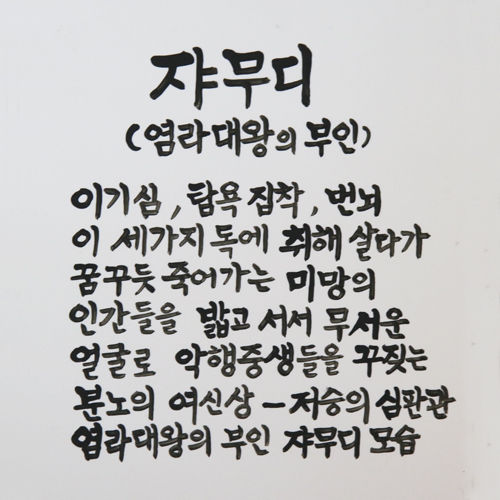 쟈무디
(염라대왕의 부인)
이기심, 탐욕 집착, 번뇌
이 세가지 독에 취해 살다가
꿈꾸듯 죽어가는 미망의
인간들을 밟고 서서 무서운
얼굴로 악행중생들을 꾸짖는
분노의 여신상 - 저승의 심판관
염라대왕의 부인 쟈무디 모습